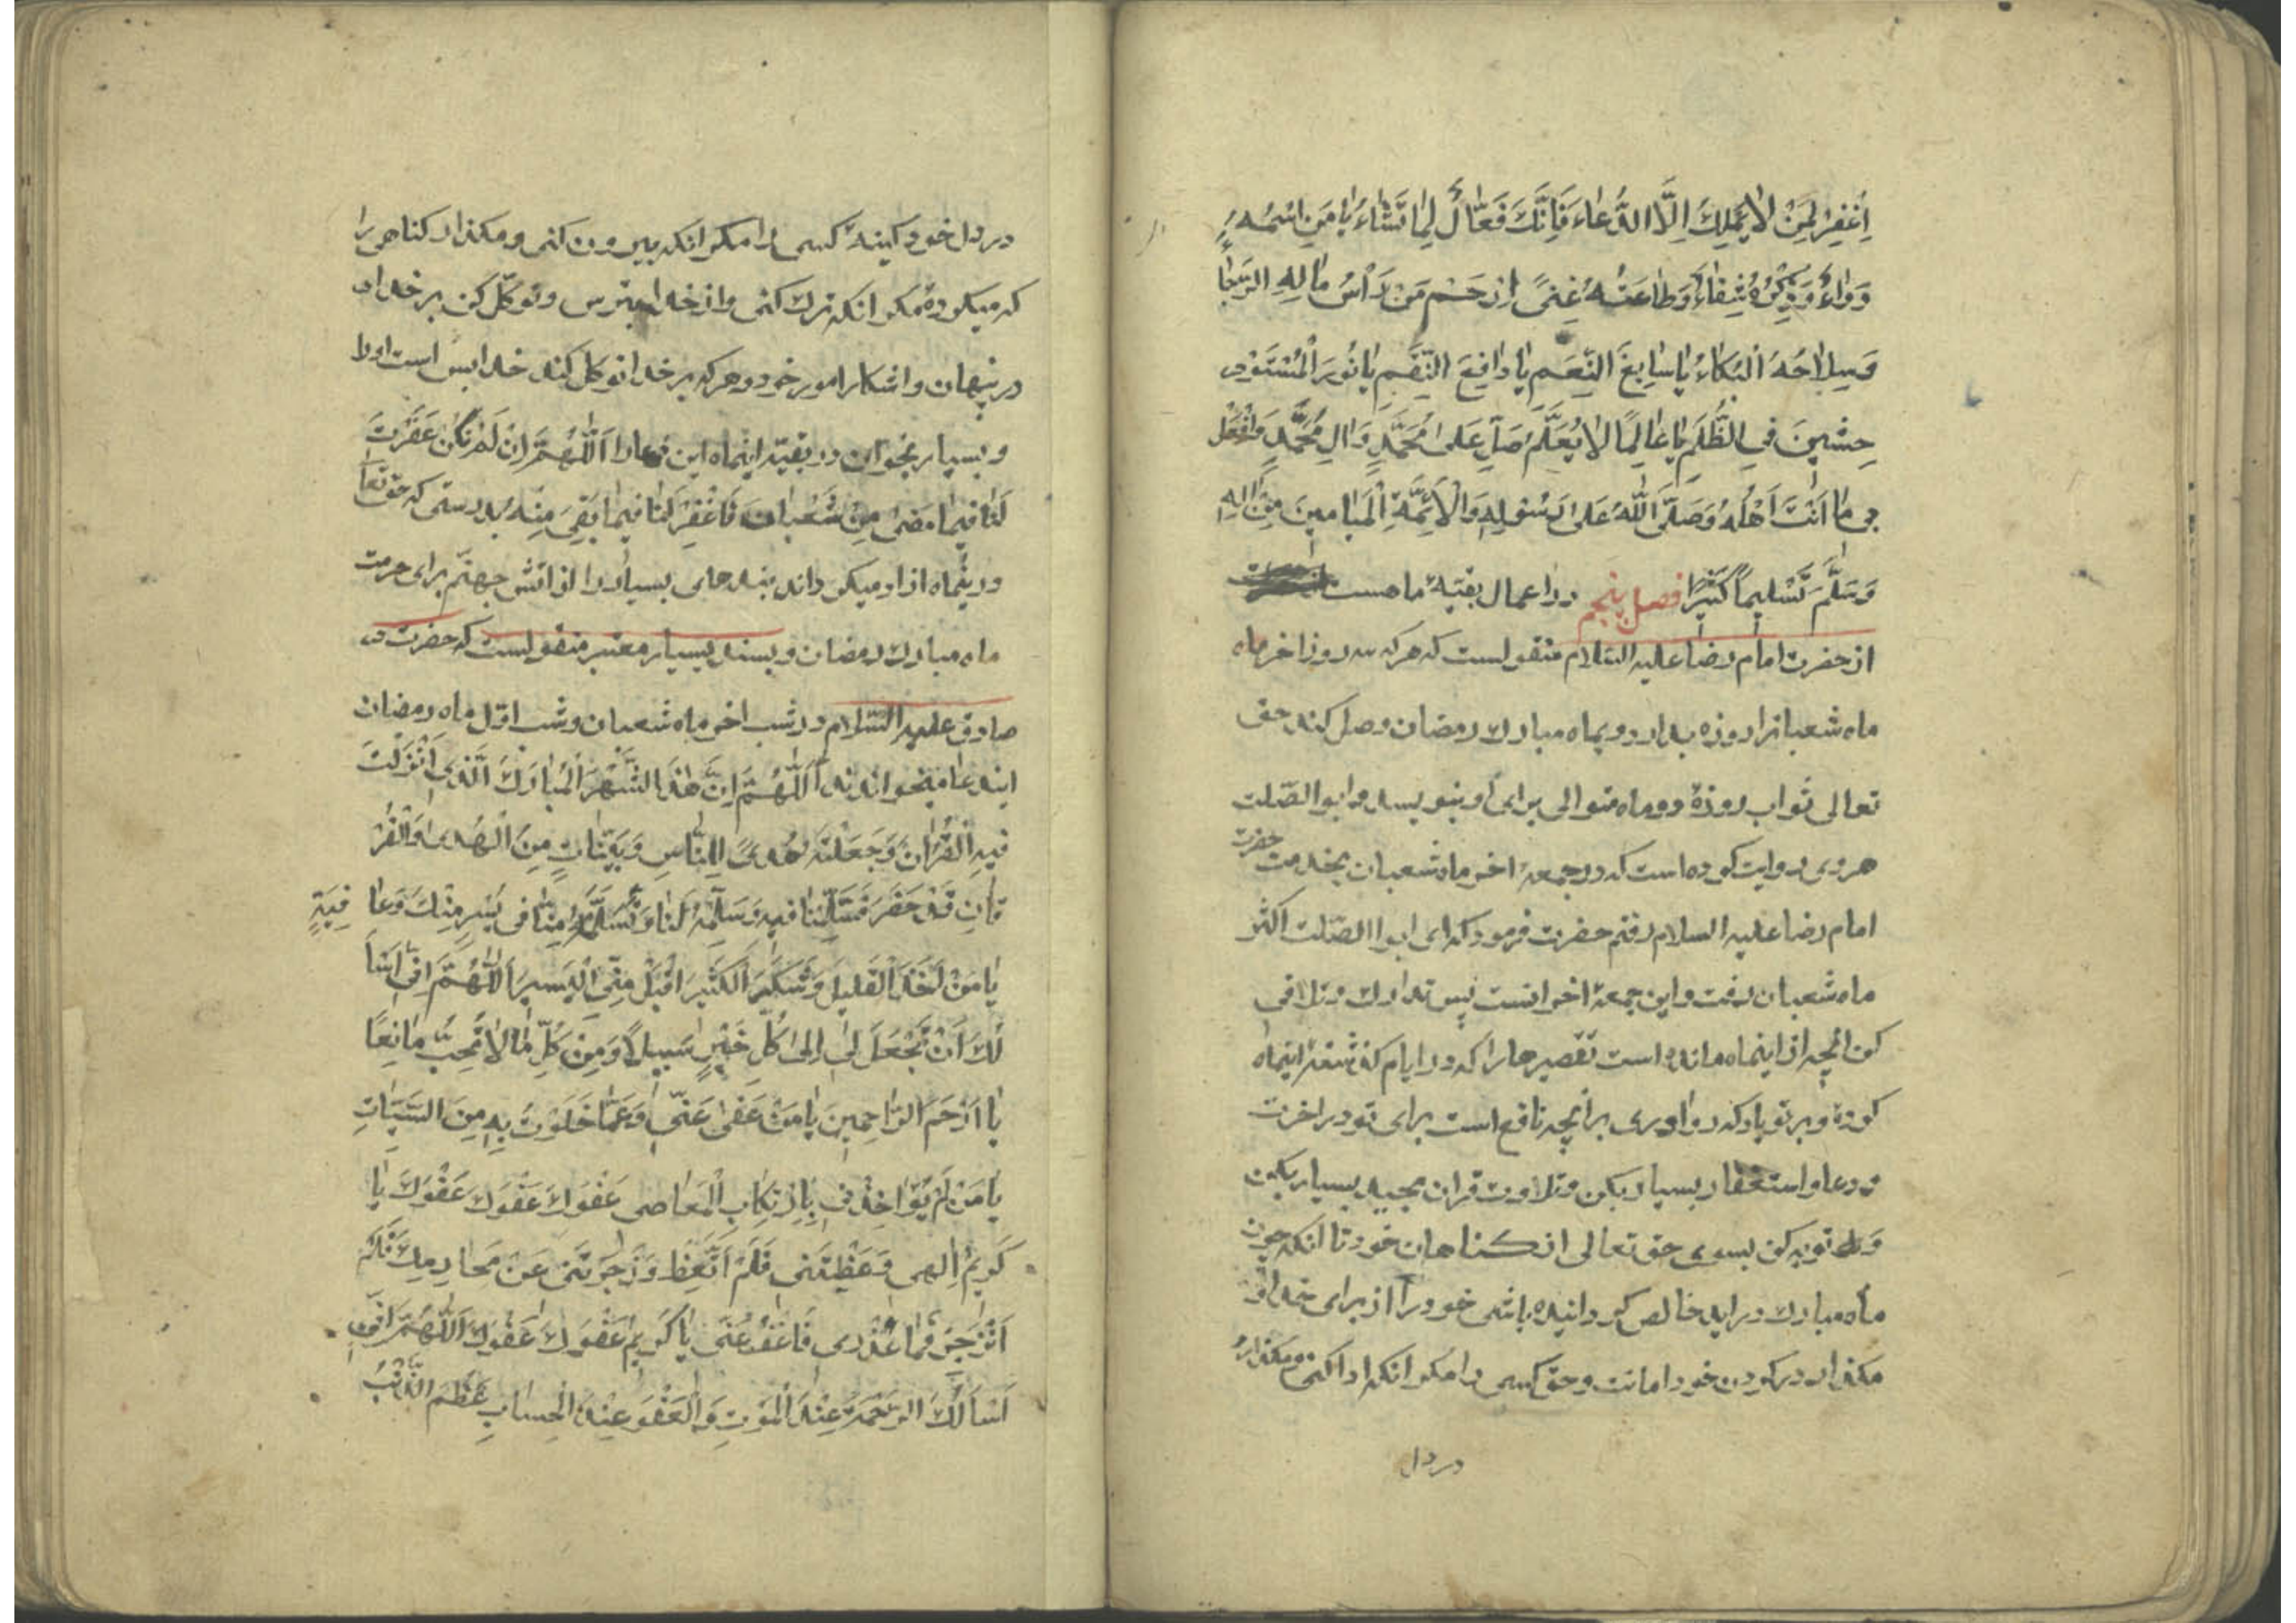 اِغْفِرْ لِمَنْ لاٰ يَمْلِكُ اِلَّا الدُّعٰاءَ فَاِنَّكَ فَعّٰالٌ لِمٰا تَشٰاءُ يٰا مَنِ اسْمُهُ
دَوٰاءٌ وَ ذِكْرُهُ شِفٰاءٌ وَ طٰاعَتُهُ غِنىً اِرْحَمْ مَنْ رَأْسُ مٰالِهِ الرَّجٰا
وَ سِلاٰحُهُ الْبُكٰاءُ يٰا سٰابِغَ النِّعَمِ يٰا دٰافِعَ النِّقَمِ يٰا نُورَ الْمُسْتَوْ
حِشِينَ فِي الظُّلَمِ يٰا عٰالِمًا لاٰ يُعَلَّمُ صَلِّ عَلىٰ مُحَمَّدٍ وَ اٰلِ مُحَمَّدٍ وَ افْعَلْ
بي مٰا اَنْتَ اَهْلُهُ وَ صَلَّى اللّٰهُ عَلىٰ رَسُولِهِ وَ الْاَئِمَّةِ الْمَيٰامِينَ مِنْ اٰلِهِ
وَ سَلَّمَ تَسْليمًا كَثيرًا فصل پنجم در اعمال بقیّهٔ ماهست
از حضرت امام رضا علیه السّلام منقولست که هر که سه روز اخر ماه
ماه شعبانرا روزه بدارد و بماه مبارک رمضان وصل کند حق
تعالی ثواب روزهٔ دو ماه متوالی برای او بنویسد و ابو الصّلت
هروی روایت کرده است که در جمعهٔ اخر ماه شعبان بخدمت حضرت
امام رضا علیه السلام رفتم حضرت فرمود که ای ابوا الصّلت اکثر
ماه شعبان رفت و این جمعهٔ اخر انست پس تدارک و تلافی
کن انچه از اینماه مانده است تقصیرها را که در ایام گذشتهٔ اینماه
کردهٔ و بر تو باد که رو اوری بر انچه نافع است برای تو در اخرت
و دعا و استغفار بسیار بکن و تلاوت قران مجید بسیار بکن
و توبه کن بسوی حق تعالی از گناهان خود تا انکه چون
ماه مبارک در اید خالص گردانیده باشی خود را از برای خدا و
مگذار در گردن خود امانت و حق کسی را مگر انکه ادا کنی و مگذار
در دل
در دل خود کینهٔ کسی را مگر انکه بیرون کنی و مگذار گناهی را
که میکردهٔ مگر انکه ترک کنی و از خدا بترس و توکّل کن بر خدا
در پنهان و اشکار امور خود و هر که بر خدا توکل کند خدا بس است او را
و بسیار بخوان در بقیّهٔ اینماه این دعا را اَللّٰهُمَّ اِنْ لَمْ تَكُنْ غَفَرْتَ
لَنٰا فيمٰا مَضىٰ مِنْ شَعْبٰانَ فَاغْفِرْ لَنٰا فيمٰا بَقِيَ مِنْهُ بدرستی که حق تعا
در ینماه ازاد میگرداند بندهای بسیار را از اتش جهنّم برای حرمت
ماه مبارک رمضان و بسند بسیار معتبر منقولست که حضرت
صادق علیه السّلام در شب اخر ماه شعبان و شب اوّل ماه رمضان
ایندعا میخواندند اَللّٰهُمَّ اِنَّ هٰذَا الشَّهْرَ الْمُبٰارَكَ الَّذي اَنْزَلْتَ
فيهِ الْقُرْاٰنَ وَ جَعَلْتَهُ هُدىً لِلنّٰاسِ وَ بَيِّنٰاتٍ مِنَ الْهُدىٰ وَ الْفُرْ
قٰانِ قَدْ حَضَرَ فَسَلِّمْنٰا فيهِ وَ سَلِّمْهُ لَنٰا وَ تَسَلَّمْهُ مِنّٰا في يُسْرٍ مِنْكَ وَ عٰا فِيَةٍ
يٰا مَنْ اَخَذَ الْقَليلَ وَ شَكَرَ الْكَثيرَ اقْبَلْ مِنِّي الْيَسيرَ اَللّٰهُمَّ اِنّي اَسْأَ
لُكَ اَنْ تَجْعَلَ لي اِلىٰ كُلِّ خَيْرٍ سَبيلاً وَ مِنْ كُلِّ مٰا لاٰ تُحِبُّ مٰانِعًا
يٰا اَرْحَمَ الرّٰاحِمينَ يٰا مَنْ عَفىٰ عَنّي وَ عَمّٰا خَلَوْتُ بِهِ مِنَ السَّيِّئٰاتِ
يٰا مَنْ لَمْ يُؤٰاخِذْني بِارْتِكٰابِ الْمَعٰاصي عَفْوَكَ عَفْوَكَ عَفْوَكَ يٰا
كَريمُ اِلٰهي وَعَظْتَني فَلَمْ اَتَّعِظْ وَ زَجَرْتَني عَنْ مَحٰارِمِكَ فَلَمْ
اَنْزَجِرْ فَمٰا عُذْري فَاعْفُ عَنّي يٰا كَريمُ عَفْوَكَ عَفْوَكَ اَللّٰهُمَّ اِنّي
اَسْأَلُكَ الرّٰحَةَ عِنْدَ الْمَوْتِ وَ الْعَفْوَ عِنْدَ الْحِسٰابِ عَظُمَ الذَّنْبُ